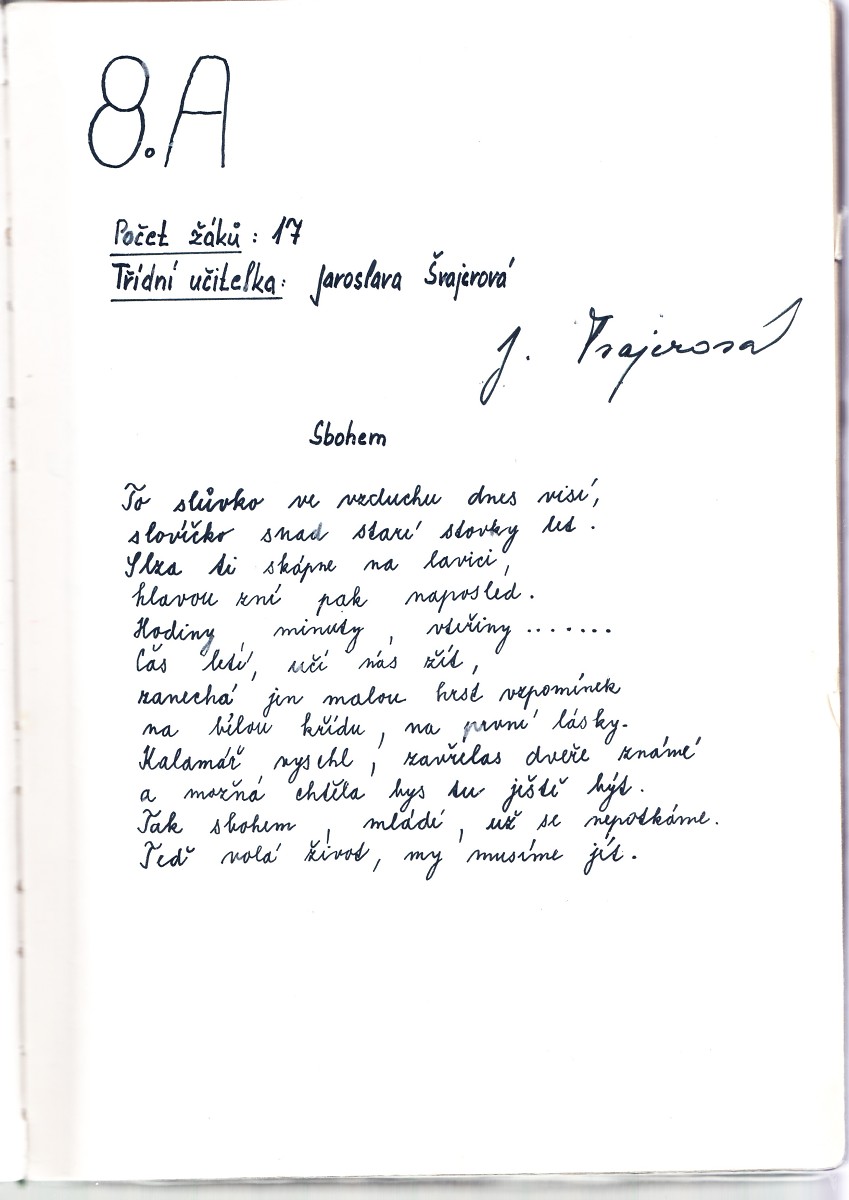 8.A
Počet žáků: 17
Třídní učitelka: Jaroslava Švajerová
J. Švajerová
Sbohem
To slůvko ve vzduchu dnes visí,
slovíčko snad staré stovky let.
Slza ti skápne na lavici,
hlavou zní pak naposled.
Hodiny, minuty, vteřiny.......
Čás letí, učí nás žít,
zanechá jen malou hrst vzpomínek
na bílou křídu, na první lásky.
Kalamář vyschl, zavřelas dveře známé
a možná chtěla bys tu ještě být.
Tak sbohem, mládí, už se nepotkáme.
Teď volá život, my musíme jít.